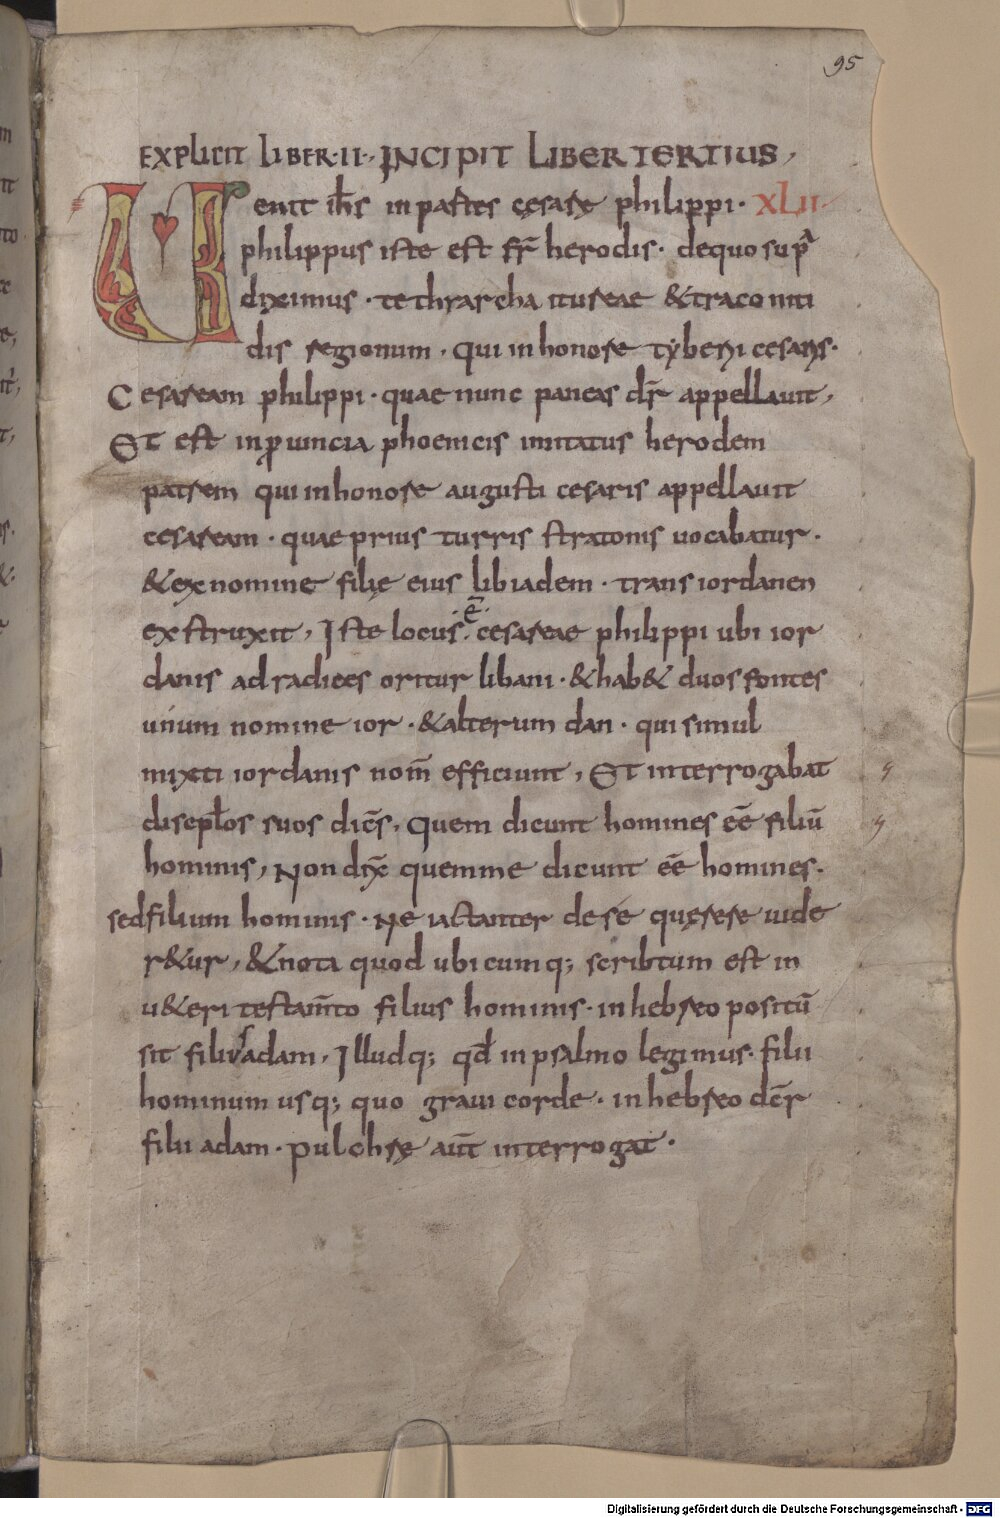 95
EXPLICIT LIBER·II· INCIPIT LIBER TERTIUS,
Uenit ih̄s in partes cęsarę philippi· XLII
philippus iste est fr̄ herodis· dequo sup̄
diximus· tethrarcha itureae &traconiti
dis regionum· qui inhonore tyberii cesaris·
Cesaream philippi· quae nunc paneas dr̄ appellauit,
Et est inprouincia phoenicis imitatus herodem
patrem qui inhonore augusti cesaris appellauit
cesaream· quae prius turris stratonis uocabatur·
&exnomine filię eius libiadem· trans iordanen
exstruxit, Iste locus· ē· cesareae philippi ubi ior
danis adradices oritur libani· &hab& duos fontes
unum nomine ior· &alterum dan· qui simul
mixti iordanis nom̄ efficiunt, Et interrogabat
discipl̄os suos dicēs, Quem dicunt homines eē filiū
hominis, Non dix̄ quemme dicunt eē homines·
sedfilium hominis· Ne iactanter dese quęrere uide
r&ur, &nota quod ubicumq; scribtum est in
u&eri testam̄to filius hominis· inhebreo positū
sit filius adam, Illudq; qd̄ inpsalmo legimus· filii
hominum usq; quo graui corde· inhebreo dcr̄
filii adam· pulchrę aut̄ interrogat·
Digitalisierung gefördert durch die Deutsche Forschungsgemeinschaft - DFG